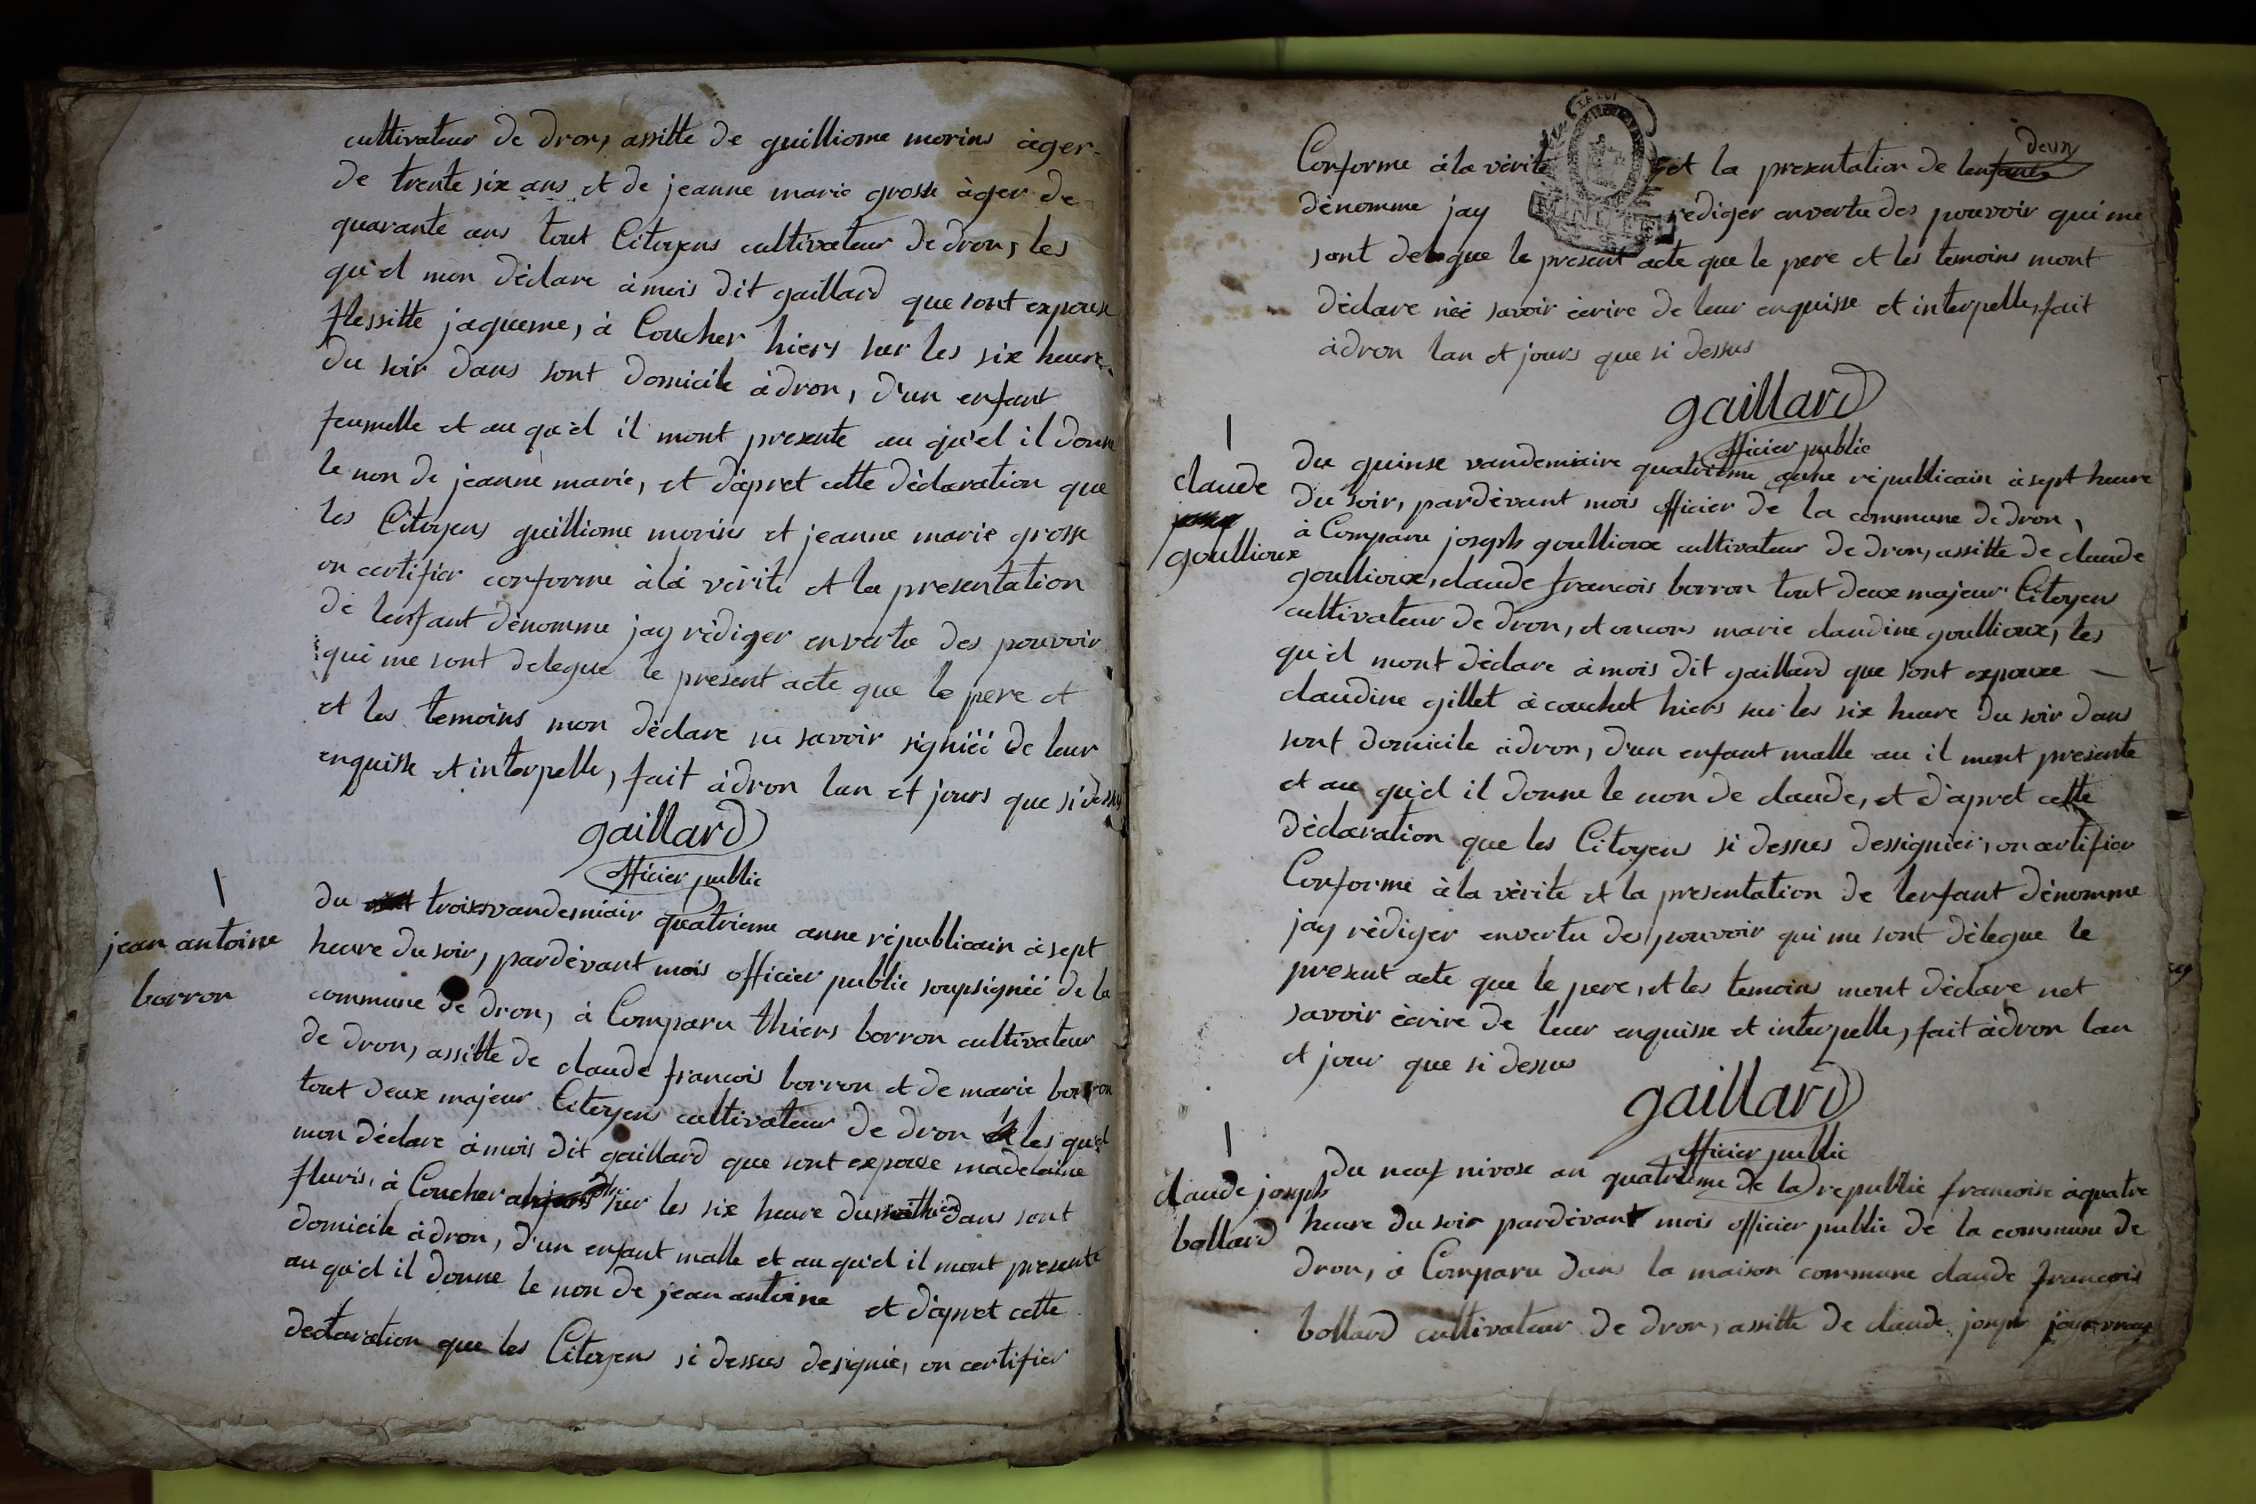 cultivateur de dron, assitte de guilliome morins àger
de trente six ans et de jeanne marie grosse àger de
quarante ans tout Citoyens cultivateur de dron, les
qu'el mon déclare à mois dit gaillard que sont expouse
jaqueme, à Coucher hiers sur les six heure
du soir dans sont domicile à dron, d'un enfant
feumelle et au qu'el il mont presente au qu'el il donne
le non de jeanne marie, et d'apret cette déclaration que
les Citoyens guilliome morins et jeanne marie grosse
on certifier conforme à la vérite et la presentation
de lenfant dénomme jay rédiger envertu des pouvoir
qui me sont delegue le present acte que le pere et
et les temoins mon déclare savoir de leur
enquisse et interpelle, fait à dron lan et jours que si dessus
gaillard
officier public
jean antoine
borron
du troix vandemiair quatrieme anne républicain à sept
heure du soir, pardévant mois officier public soupsignéé de la
commune de dron, à Comparu thiers borron cultivateur
de dron, assitte de claude francois borron et de marie borron
tout deux majeur Citoyens cultivateur de dron les qu'el
mon déclare à mois dit gaillard que sont expouse madelaine
fleuris, à Coucher sur les six heure du dans sont
domicile à dron, d'un enfant malle et au qu'el il mont presente
au qu'el il donne le non de jean antoine et d'apret cette
declaration que les Citoyens si dessus designié, on certifier
Conforme à la vérite et la presentation de lenfant
dénomme jay rediger envertu des pouvoir qui me
sont delegue le present acte que le pere et les temoins mont
déclare néé savoir écrire de leur enquisse et interpelle, fait
à dron lan et jours que si dessus
gaillard
officier public
claude
goullioux
du quinse vandemiaire quatrieme anne républicain à sept heure
du soir, pardévant mois officier de la commune de dron,
à Comparu joseph goullioux cultivateur de dron, assitte de claude
goullioux, claude francois borron tout deux majeur Citoyen
cultivateur de dron, et encors marie claudine goullioux, les
qu'el mont déclare à mois dit gaillard que sont expouxe
claudine gillet à couchet hiers sur les six heure du soir dans
sont domicile à dron, d'un enfant malle au il mont presente
et au qu'el il donne le non de claude, et d'apret cette
déclaration que les Citoyens si dessus dessignier, on certifier
Conforme à la vérite et la presentation de lenfant dénomme
jay rédiger envertu des pouvoir qui me sont délegue le
present acte que le pere, et les temoins mont déclare net
savoir écrire de leur enquisse et interpelle, fait à dron lan
et jour que si dessus
gaillard
officier public
claude joseph
bollard
Du neuf nivose an quatrieme de la republic francoise à quatre
heure du soir pardévant mois officier public de la commune de
dron, à Comparu dans la maison commune claude francois
bollard cultivateur de dron, assitte de claude joseph